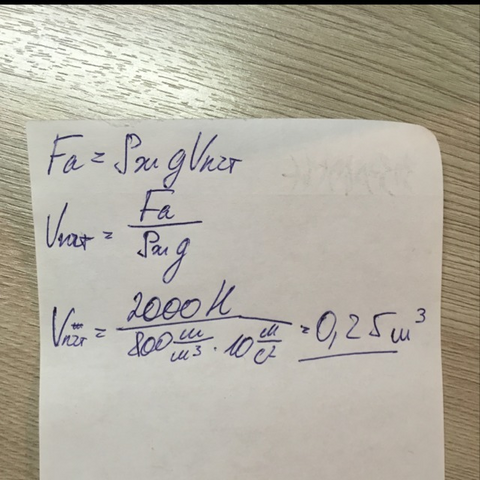 Fa = ρж g Vпчт
Vпчт = Fa / ρж g
Vпчт = 2000 Н / 800 м/м³ · 10 м/с² = 0,25 м³